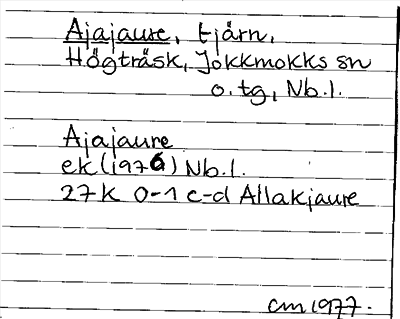 Ajajaure, tjärn,
Högträsk, Jokkmokks sn
o. tg, Nb. l.
Ajajaure
ek (1976) Nb. l.
27 K 0-1 c-d Allakjaure
CM 1977.